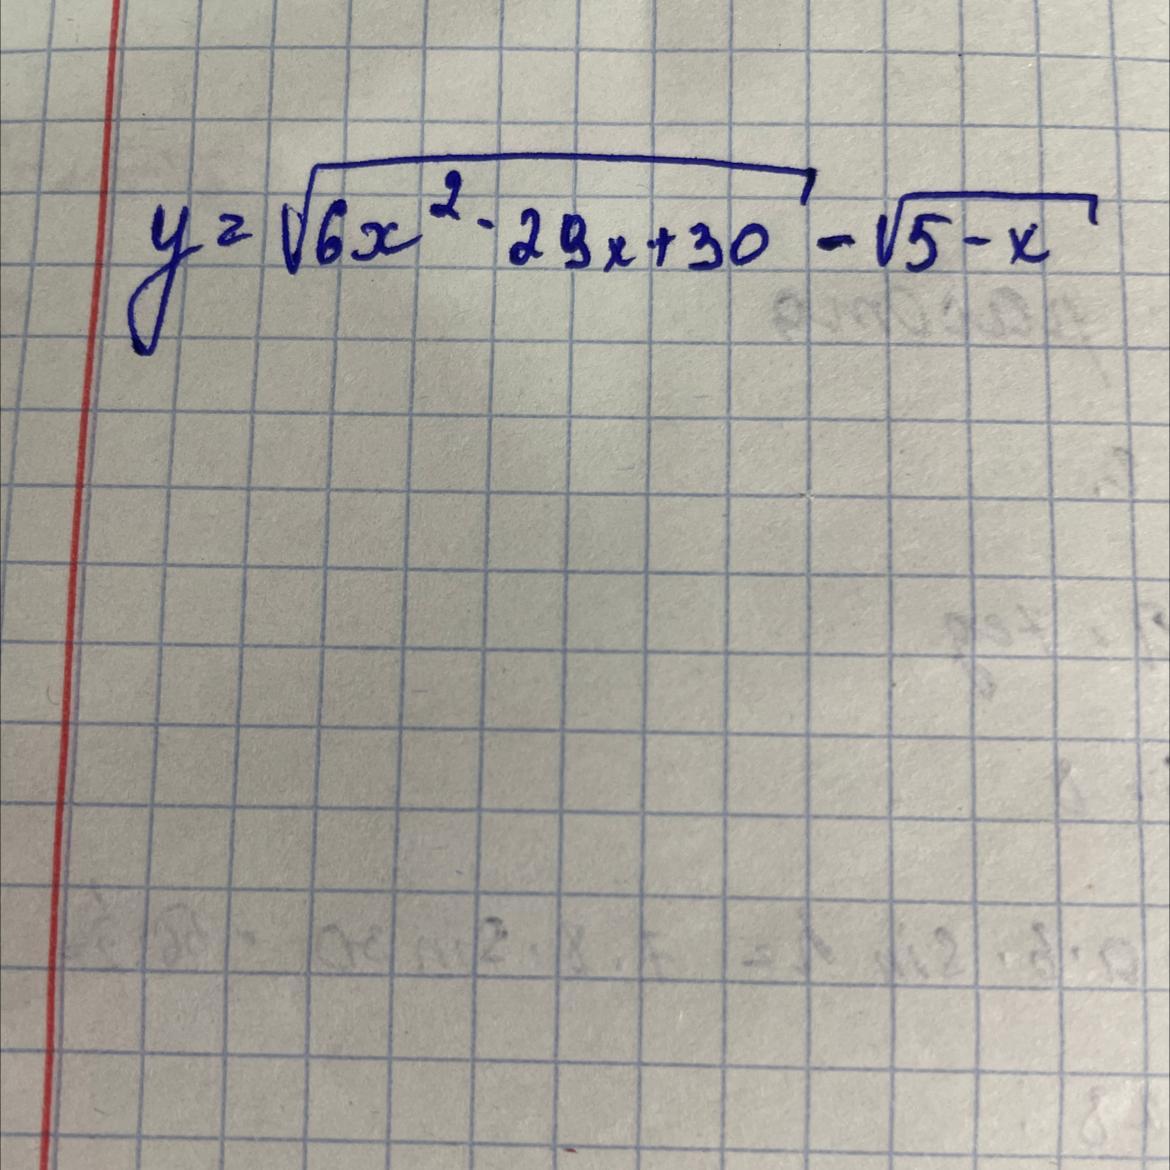 y = √6x² - 29x + 30 - √5 - x